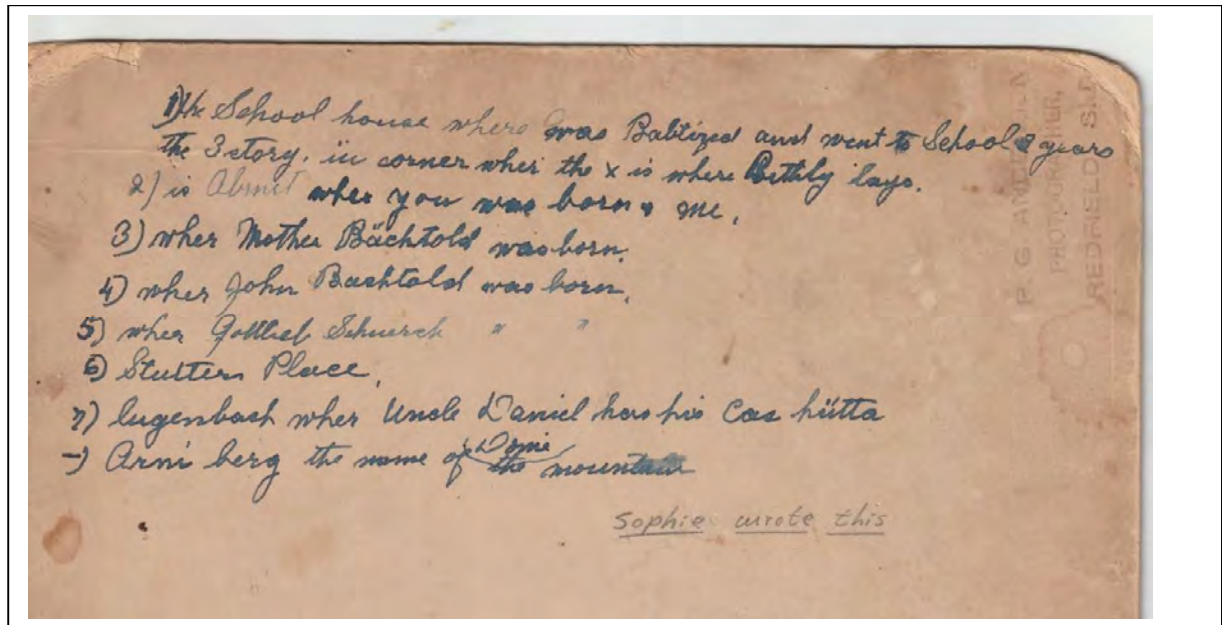 1) the School house where I was Babtized and went to School 8 years
the 3 story. in corner wher the x is where Bethly lays.
2) is Abnit wher you was born & me.
3) wher Mother Bächtold was born.
4) wher John Bachtold was born.
5) wher Gottlieb Schuerch " "
6) Stutters Place,
7) lugenbach wher Uncle Daniel has his Cas hütta
-) Arni berg the name of the mountain
Sophie wrote this
P. G. AND
PHOTOGRAPHER,
REDFIELD S.D.